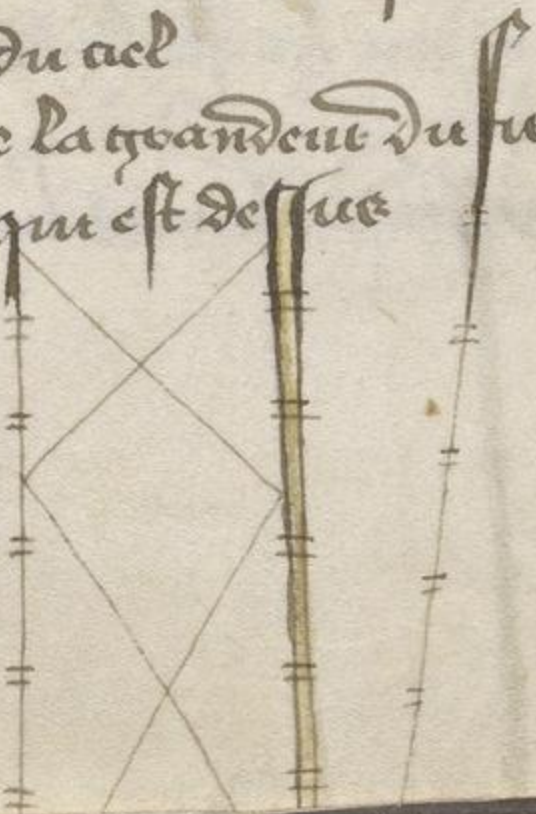 du ciel
e la grandeur du fir
qui est dessus